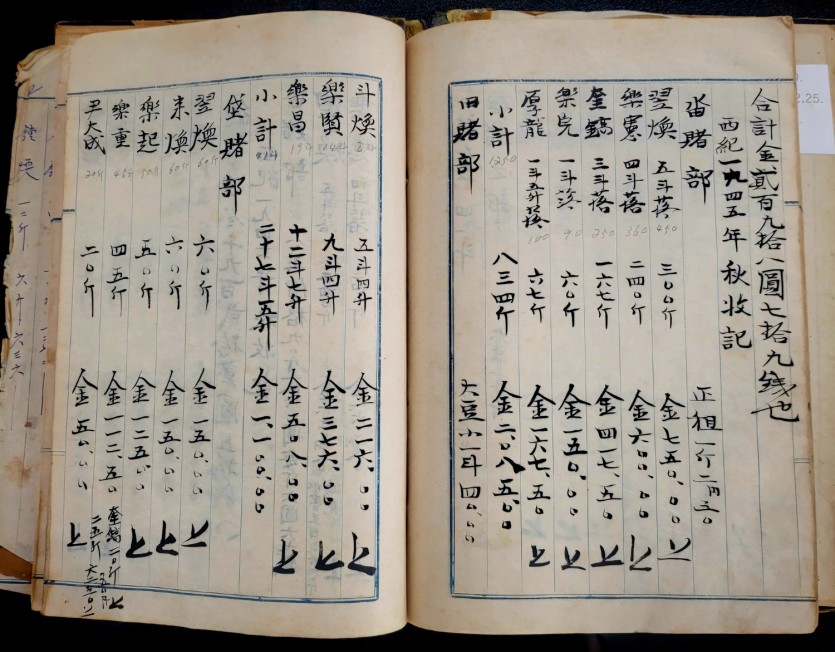 合計金貳百九拾八圓七拾九錢也
西紀一九四五年秋收記
畓賭部 正租一斤二円五〇
翌煥 五斗落 450 三〇〇斤 金七五〇.〇〇 上
樂憲 四斗落 360 二四〇斤 金六〇〇.〇〇 上
奎鎬 三斗落 250 一六七斤 金四一七.五〇 上
樂完 一斗落 90 六〇斤 金一五〇.〇〇 上
厚龍 一斗五升落 100 六七斤 金一六七.五〇 上
小計 1250 八三四斤 金二.〇八五.〇〇
田賭部 大豆小一斗四〇.〇〇
斗煥 五斗四升 金二一六.〇〇 上
樂賢 九斗四升 金三七六.〇〇 上
樂昌 十二斗七升 金五〇八.〇〇 上
小計 二十七斗五升 金一.一〇〇.〇〇
垈賭部
翌煥 60斤 六〇斤 金一五〇.〇〇 上
來煥 60斤 六〇斤 金一五〇.〇〇 上
樂起 50斤 五〇斤 金一二五.〇〇 上
樂重 45斤 四五斤 金一一二.五〇
奎鎬 二〇斤
二五斤
尹大成 20斤 二〇斤 金五〇.〇〇 上